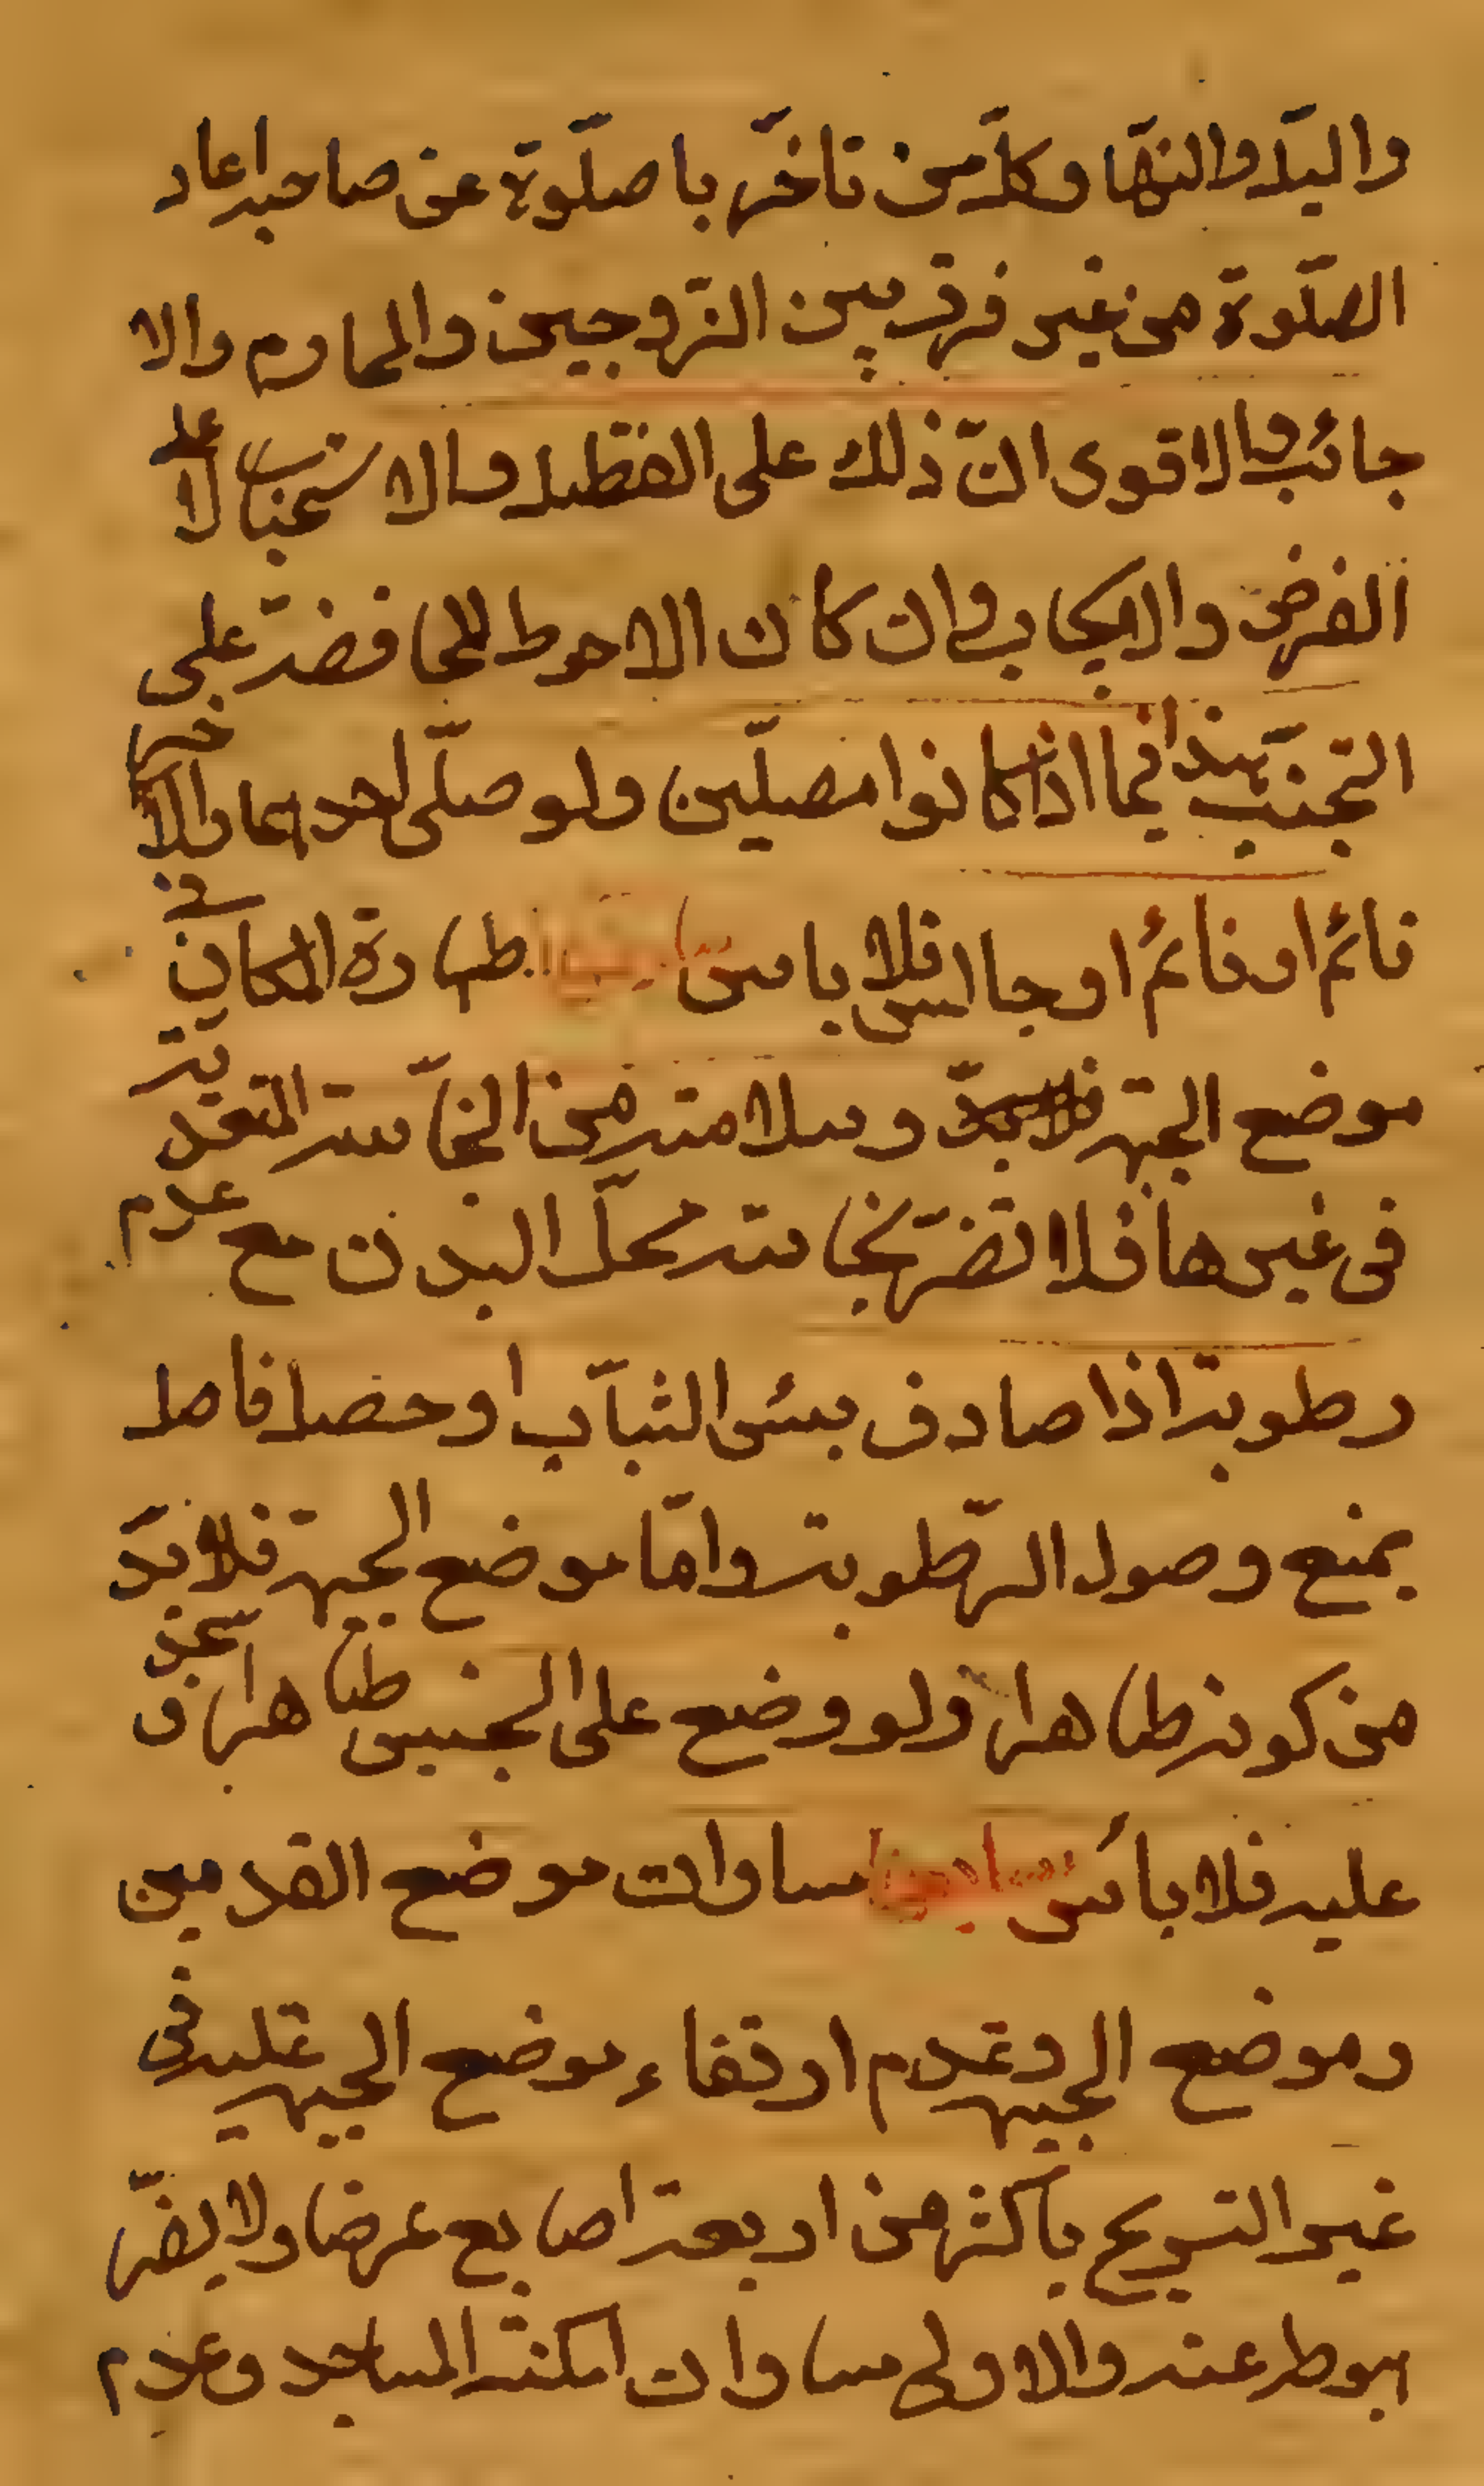 واليلد والنهٓا وكلّ من تاخّر باصلٓوة عن صاحبه اعاد
الصلٓوة من غير فرق بين الزّوجين والمحارم والا
جانب والاقوى انّ ذلك على الفظيله والاستحباب لا على
الفرض والايجاب وان كان الاحوط المحافضة على
التجنّب هذا فيما اذا كانوا مصلّين ولو صلّى احدهما والاخر
نائم او قائم او جالس فلا باس خامسها طهارة المكان في
موضع الجبهة وسلامته من النّجاسة المتعدّية
في غيرها فلا تضرّ نجاسة محلّ البدن مع عدم
رطوبته اذا صادف بيس الثيٓاب او حصل فاصل
يمنع وصول الرّطوبة وامّا موضع الجبهة فلا بدّ
من كونه طاهرا ولو وضع على الجنس طاهرا وسجد
عليه فلا بأس سادسها مساوات موضع القدمين
وموضع الجبهة وعدم ارتفاء موضع الجبهة عليه في
غير التسريح باكثر من اربعة اصابع عرضا ولا يضرّ
هبوطه عنه والاولى مساوات امكنة المساجد وعدم